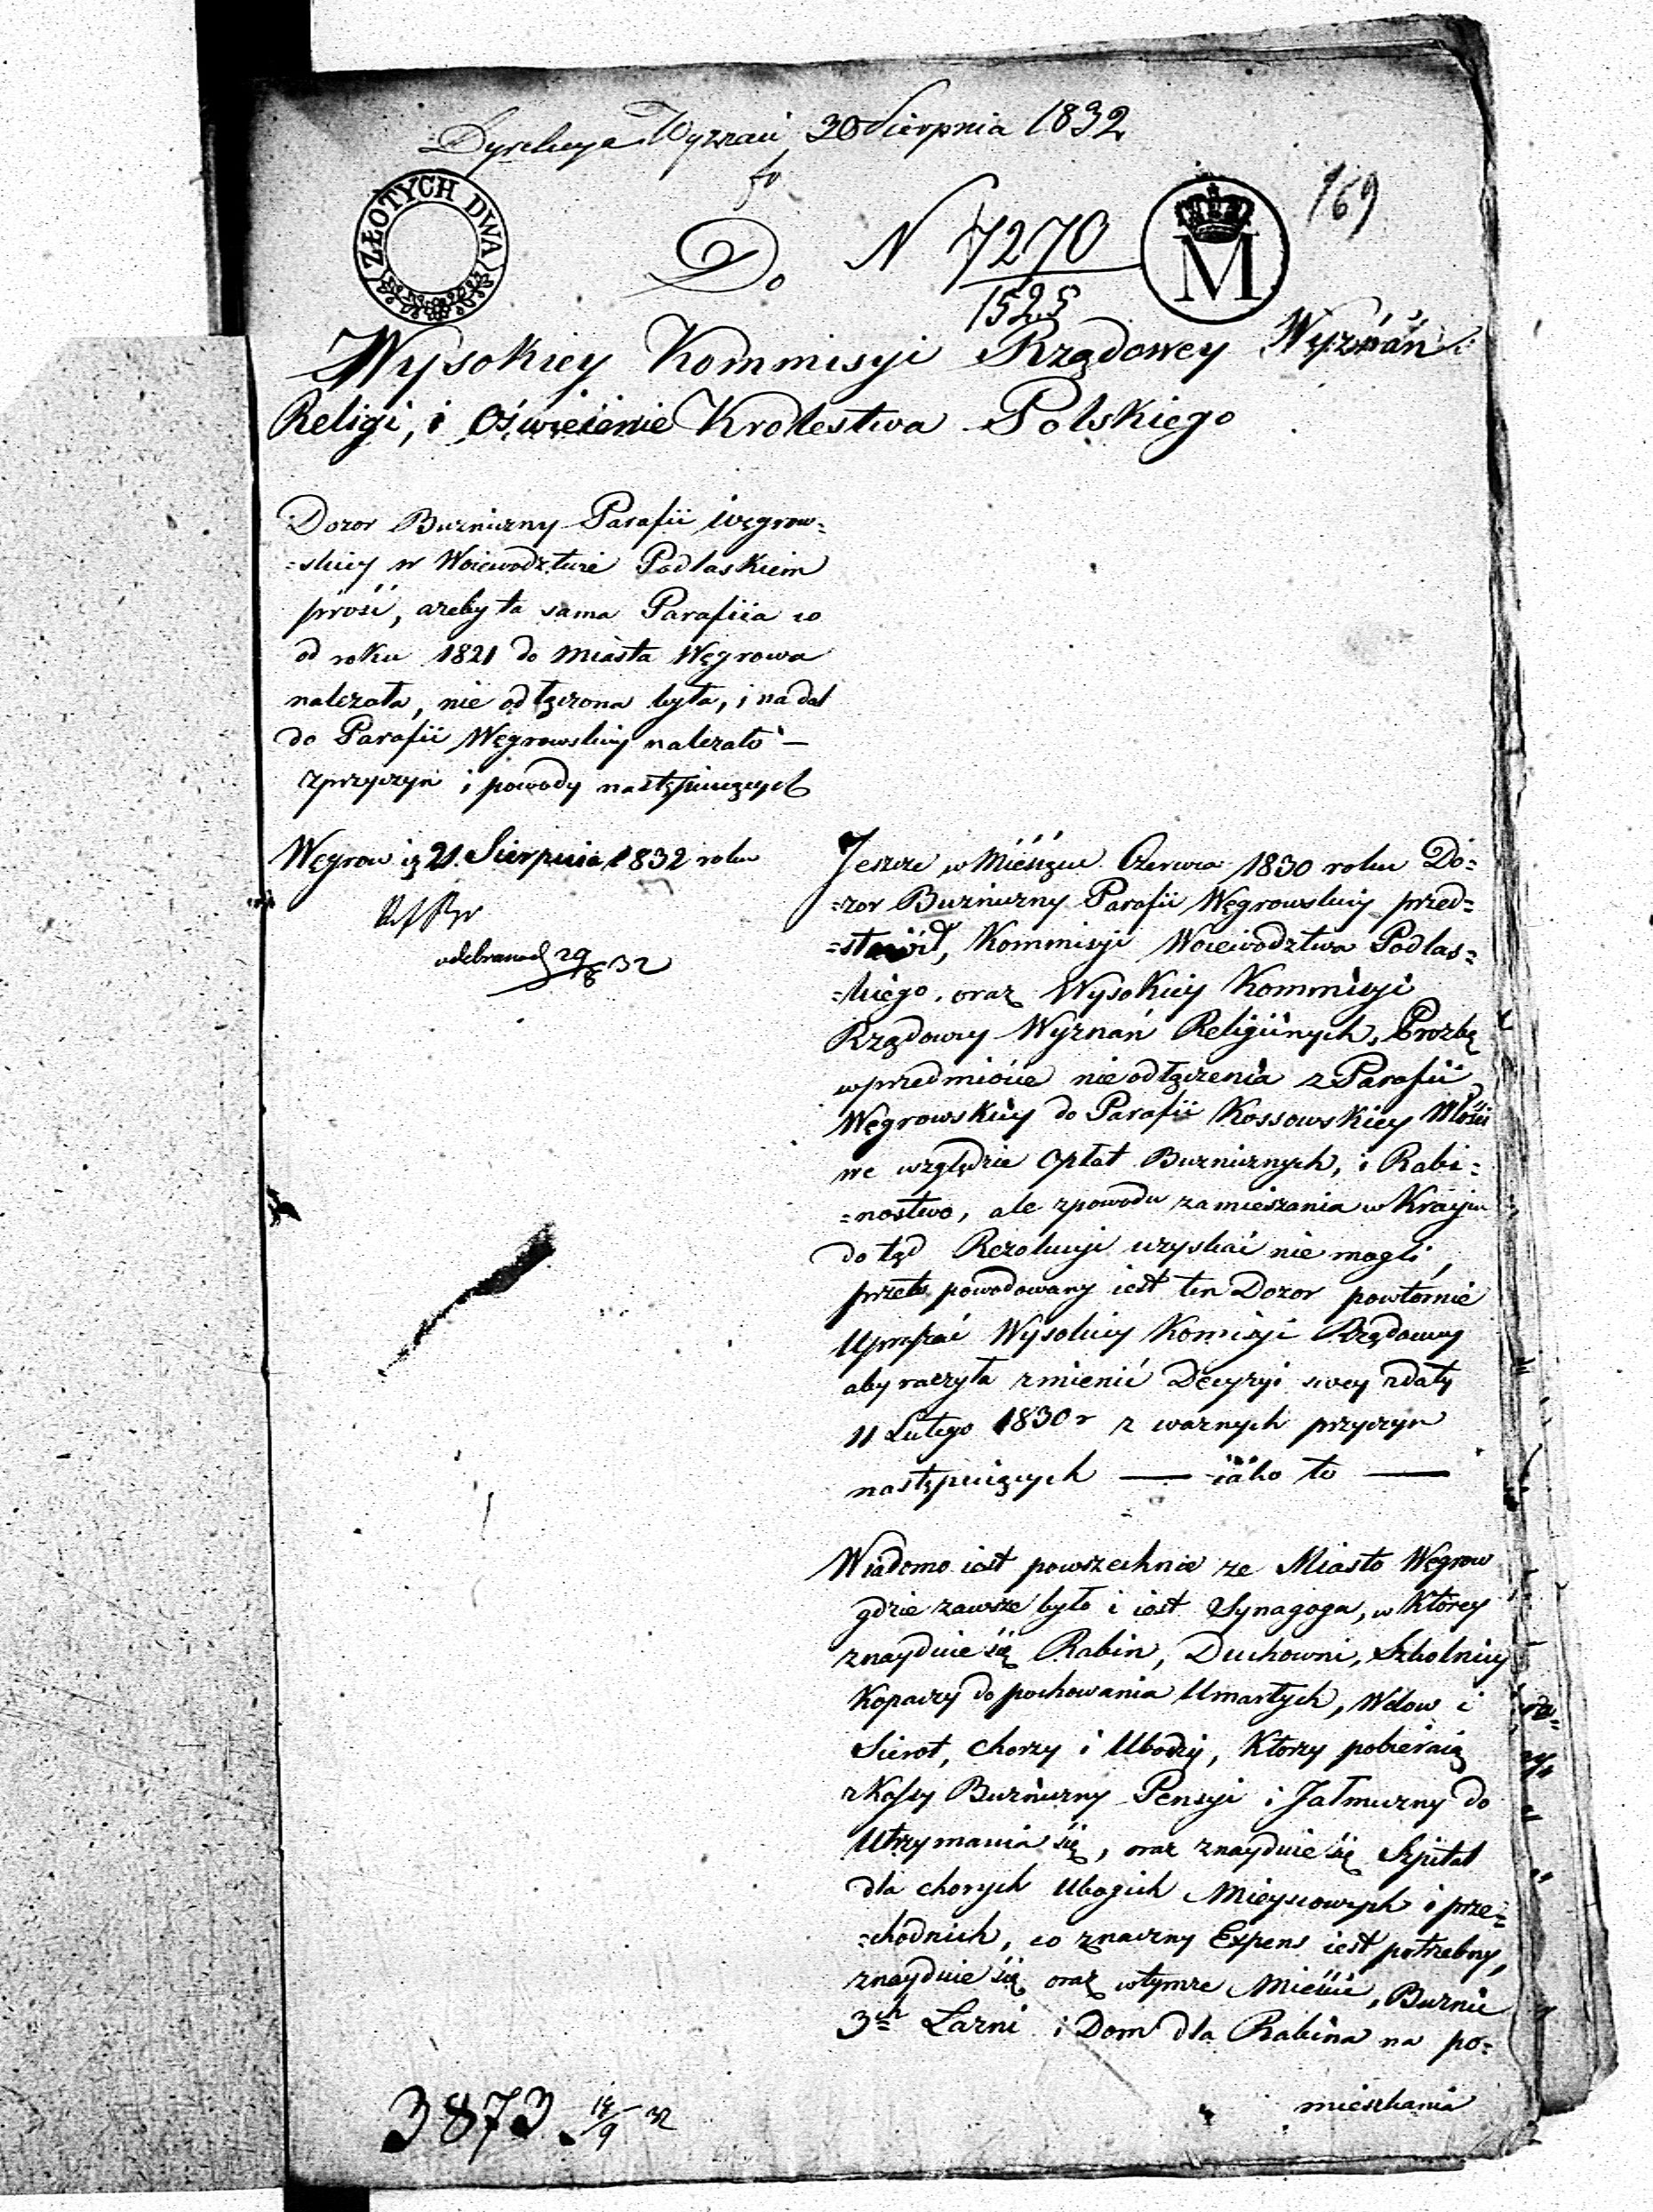 Dyrekcya Wyznań 30 Sierpnia 1832
169
ZŁOTYCH DWA
Do N 7270
1525
M
Wysokiey Kommisyi Rządowey Wyznań
Religi, i Oświecenie Krolestwa Polskiego
Dozor Buzniczny Parafii Węgrow=
=skiey w Woiewodztwie Podlaskiem
prosi, azeby ta sama Parafiia co
od roku 1821 do Miasta Węgrowa
nalezała, nie odłączona była, i nadal
do Parafii Węgrowskiey nalezało —
z przyczyn i powody następuiących
Węgrow d 21 Sierpnia 1832 roku
odebrano d 29/8 32
Jeszcze w Miesiącu Czerwca 1830 roku Do=
=zor Buzniczny Parafii Węgrowskiey przed=
=stawił, Kommisyi Woiewodztwa Podlas=
=kiego, oraz Wysokiey Kommisyi
Rządowey Wyznań Religiinych, Prozbę
w przedmiocie nie odłączenia z Parafii
Węgrowskiey do Parafii Kossowskiey Włości
we względzie Opłat Buznicznych, i Rabi=
=nostwo, ale z powodu zamieszania w Kraiu
do tąd Rezolucyi uzyskać nie mogli,
przeto powodowany iest ten Dozor powtornie
Upraszać Wysokiey Komisyi Rządowey
aby raczyła zmienić Decyzyi swey z daty
11 Lutego 1830 r z waznych przyczyn
następuiących — iako to —
Wiadomo iest powszechnie ze Miasto Węgrow
gdzie zawsze było i iest Synagoga, w Ktorey
znayduie się Rabin, Duchowni, Szkolnicy
Kopaczy do pochowania Umarłych, Wdow i
Sierot, chorzy i Ubodzy, Ktorzy pobieraią
z Kassy Buzniczny Pensyi i Jałmuzny do
Utrzymania się, oraz znayduie się Szpital
dla chorych Ubogich Mieyscowych i prze=
=chodnich, co znaczny Expens iest potrzebny,
znayduie się oraz w tymze Mieście, Buznic
3ch Łazni i Dom dla Rabina na po=
mieszkania
3873 14/9 32